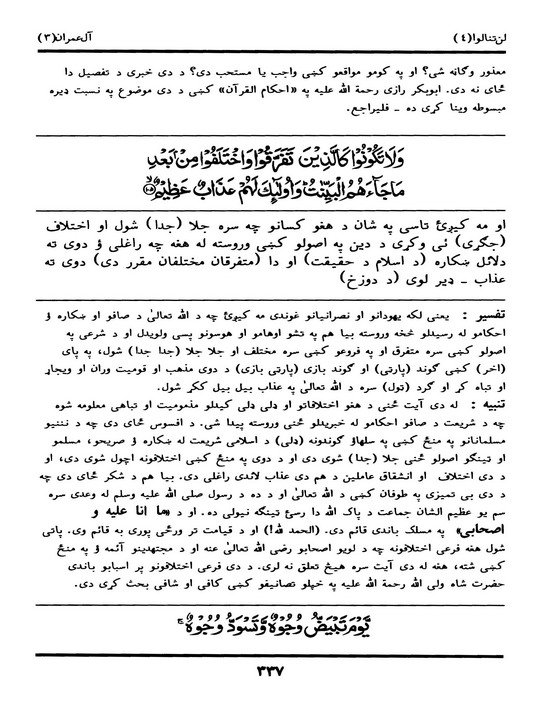 لن تنالوا (٤) آل عمران (٣)
معذور وګاڼه شی؟ او په کومو مواقعو کښی واجب یا مستحب دی؟ د دی خبری د تفصیل دا
ځای نه دی. ابوبکر رازی رحمة الله علیه په «احکام القرآن» کښی د دی موضوع په نسبت ډیره
مبسوطه وینا کړی ده ـ فلیراجع.
وَلَا تَكُونُوا كَالَّذِينَ تَفَرَّقُوا وَاخْتَلَفُوا مِنْ بَعْدِ
مَا جَاءَهُمُ الْبَيِّنٰتُ وَأُولٰٓئِكَ لَهُمْ عَذَابٌ عَظِيمٌ ١٠٥
او مه کیږئ تاسی په شان د هغو کسانو چه سره جلا (جدا) شول او اختلاف
(جګړی) ئی وکړی د دین په اصولو کښی وروسته له هغه چه راغلی ؤ دوی ته
دلائل ښکاره (د اسلام د حقیقت) او دا (متفرقان مختلفان مقرر دی) دوی ته
عذاب ـ ډیر لوی (د دوزخ)
تفسیر : یعنی لکه یهودانو او نصرانیانو غوندی مه کیږئ چه د الله تعالیٰ د صافو او ښکاره ؤ
احکامو له رسیدلو څخه وروسته بیا هم په تشو اوهامو او هوسونو پسی ولویدل او د شرعی په
اصولو کښی سره متفرق او په فروعو کښی سره مختلف او جلا جلا (جدا جدا) شول، په پای
(اخر) کښی ګوند (پارټی) او ګوند بازی (پارټی بازی) د دوی مذهب او قومیت وران او ویجاړ
او تباه کړ او ګرد (ټول) سره د الله تعالیٰ په عذاب بیل بیل ککړ شول.
تنبیه : له دی آیت ځنی د هغو اختلافاتو او ډلی ډلی کیدلو مذمومیت او تباهی معلومه شوه
چه د شریعت د صافو احکامو له خبریدلو ځنی وروسته پیدا شی. د افسوس ځای دی چه د نننیو
مسلمانانو په منځ کښی په سلهاؤ ګوندونه (ډلی) د اسلامی شریعت له ښکاره ؤ صریحو، مسلمو
او ټینګو اصولو ځنی جلا (جدا) شوی دی او د دوی په منځ کښی اختلافونه اچول شوی دی، او
د دی اختلاف او انشقاق عاملین د هم دی عذاب لاندی راغلی دی. بیا هم د شکر ځای دی چه
د دی بی تمیزی په طوفان کښی د الله تعالیٰ او د ده د رسول صلی الله علیه وسلم له وعدی سره
سم یو عظیم الشان جماعت د پاک الله دا رسئ ټینګه نیولی ده. او د «ما انا علیه و
اصحابی» په مسلک باندی قائم دی. (الحمد لله!) او د قیامت تر ورځی پوری به قائم وی. پاتی
شول هغه فرعی اختلافونه چه د لویو اصحابو رضی الله تعالیٰ عنه او د مجتهدینو آئمه ؤ په منځ
کښی شته، هغه له دی آیت سره هیڅ تعلق نه لری. د دی فرعی اختلافونو پر اسبابو باندی
حضرت شاه ولی الله رحمة الله علیه په خپلو تصانیفو کښی کافی او شافی بحث کړی دی.
يَوْمَ تَبْيَضُّ وُجُوهٌ وَتَسْوَدُّ وُجُوهٌ ج
٣٣٧